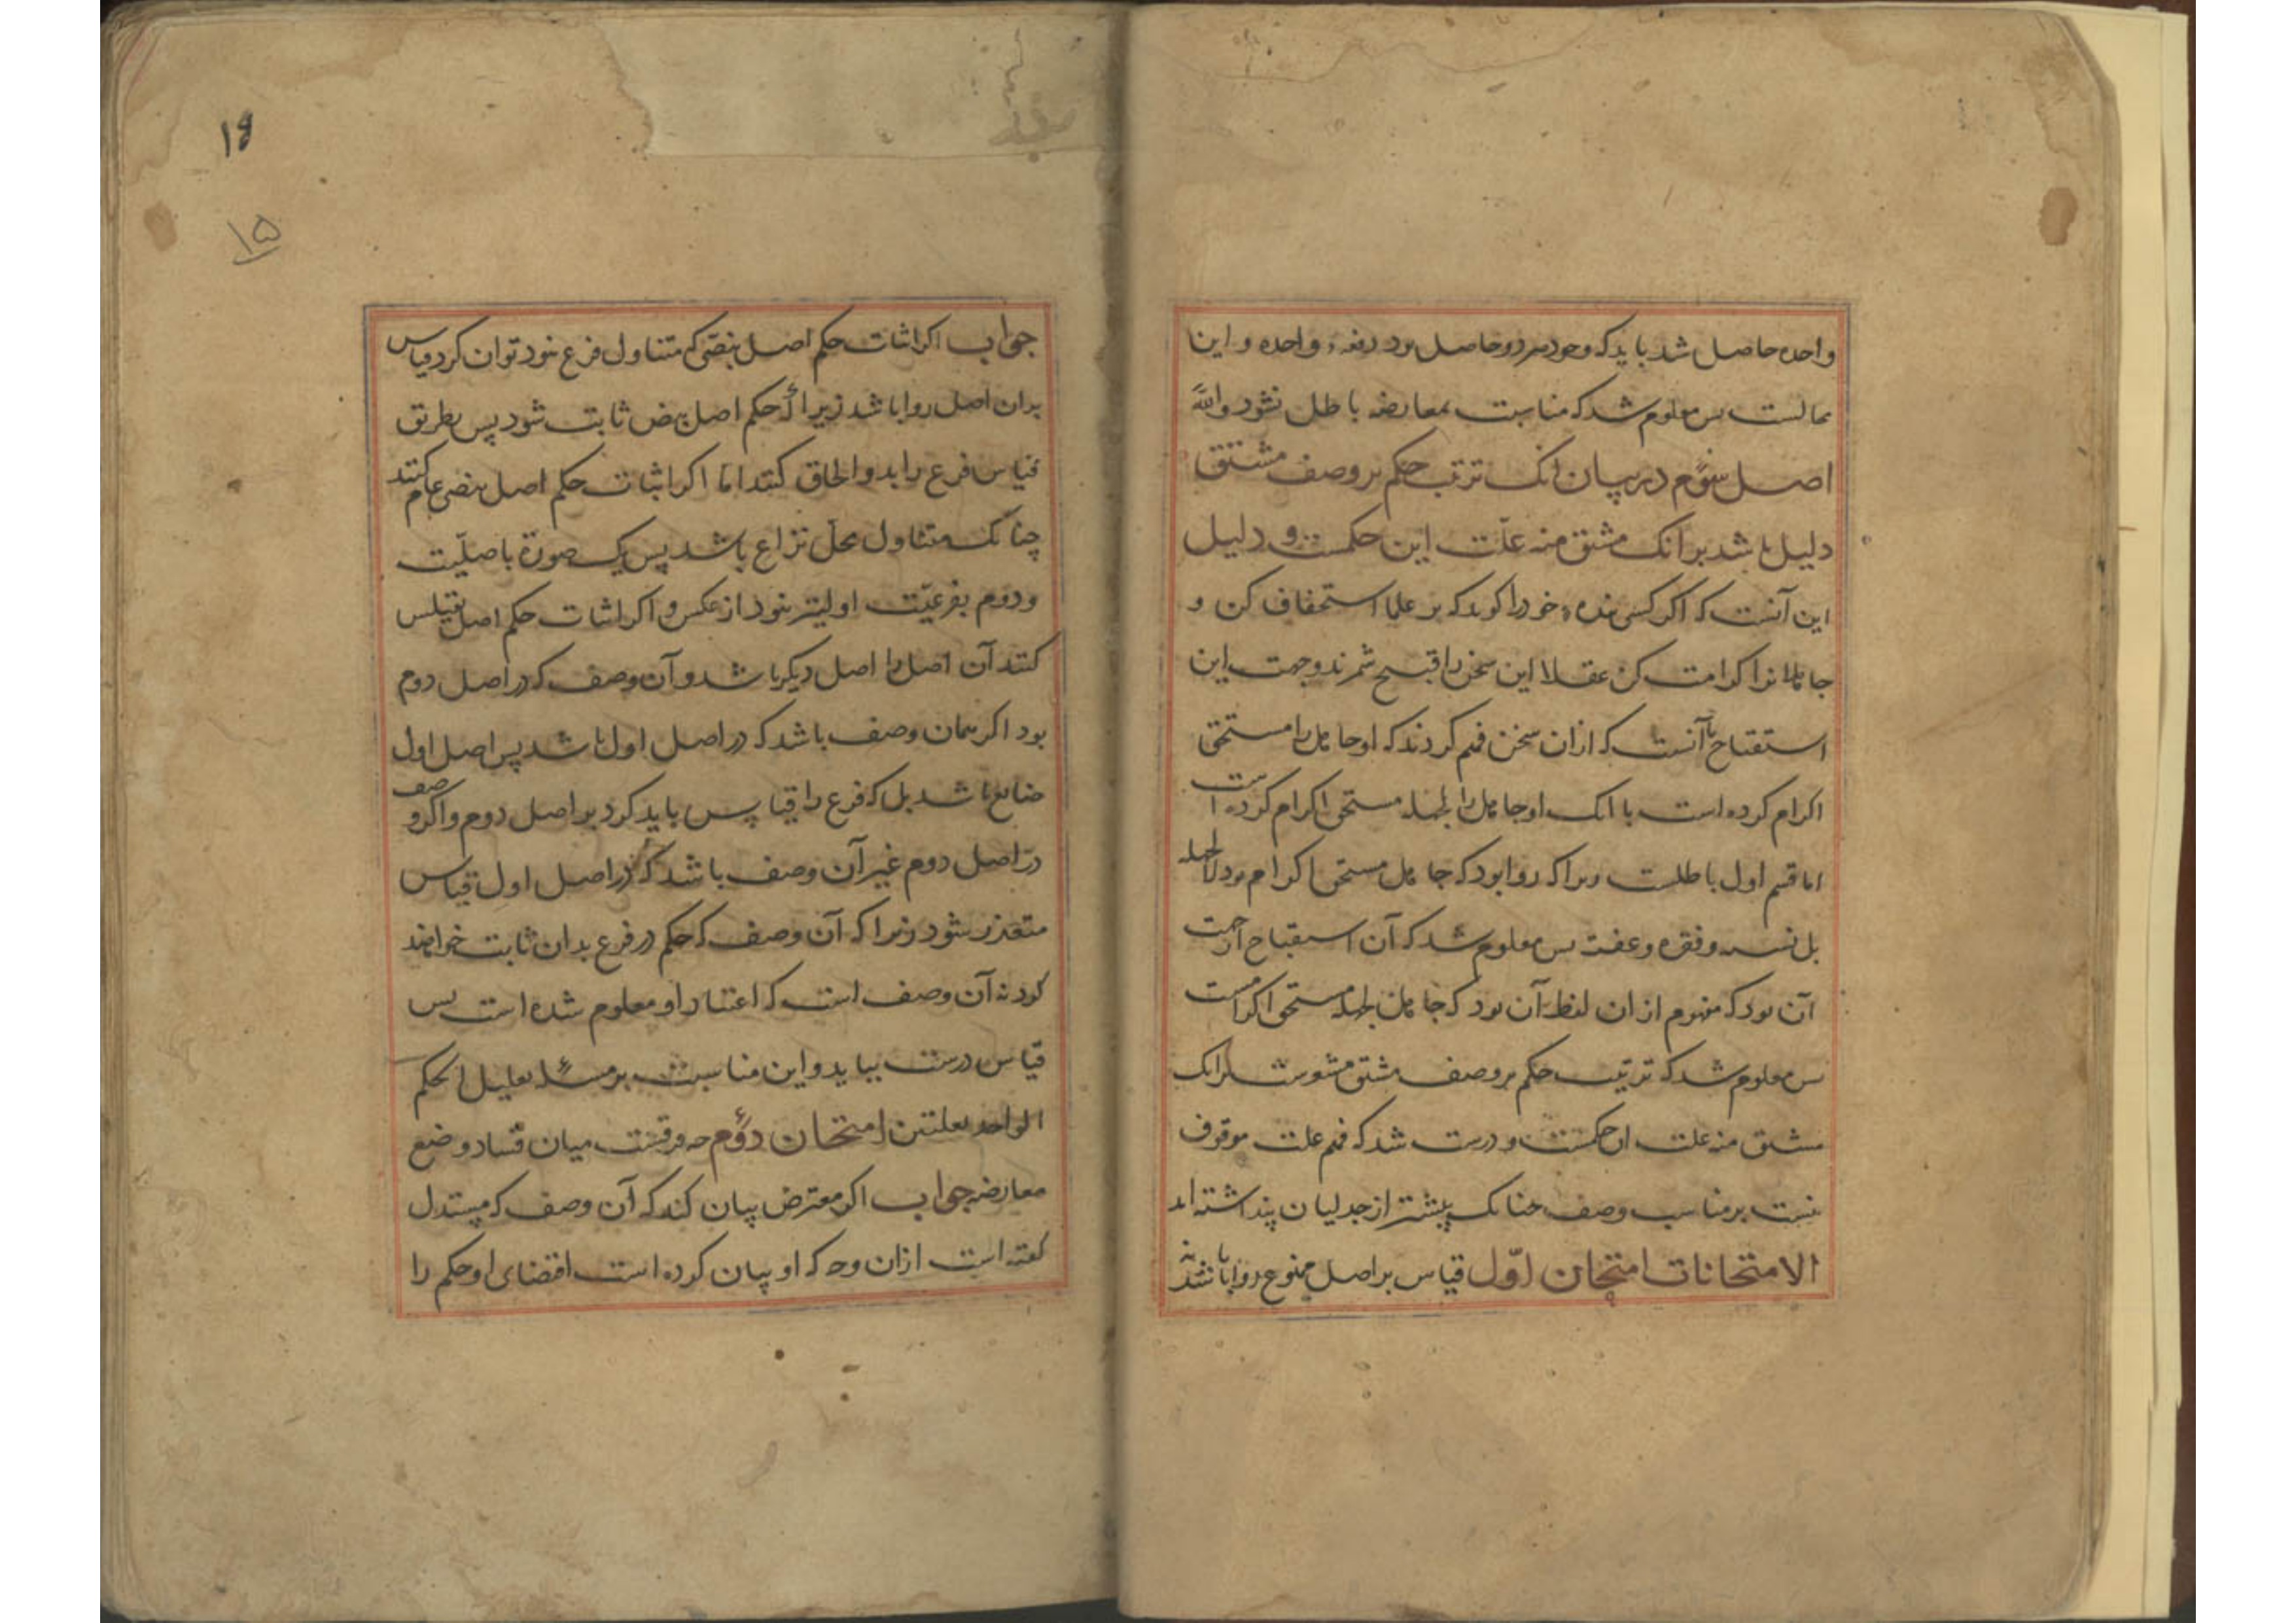 واحده حاصل شد باید که وجود هر دو حاصل بود دفعهٔ واحده و این
محالست بس معلوم شد که مناسبت بمعارضه باطل نشود والله
اصل سوم در بیان انک ترتب حکم بر وصف مشتق
دلیل باشد بر آنک مشتق منه علّت این حکمست و دلیل
این آنست که اکر کسی بنده خود را کوید که بر علما استخفاف کن و
جاهلانرا کرامت کن عقلا این سخن را قبیح شمرند و جهت این
استقباح یا آنست که ازان سخن فهم کردند که او جاهل را مستحق
اکرام کرده است یا انک او جاهل را لجهله مستحق اکرام کرده است
اما قسم اول باطلست زیرا که روا بود که جاهل مستحق اکرام بود لا لجهله
بل نسبه و فقره و عفته بس معلوم شد که آن استقباح از جهت
آن بود که مفهوم ازان لفظ آن بود که جاهل لجهله مستحق اکرامست
بس معلوم شد که ترتیب حکم بر وصف مشتق مشعرست بدانک
مشتق منه علت ان حکمست و درست شد که فهم علت موقوف
نیست بر مناسب وصف جنانک پیشتر از جدلیان پنداشته اند
الامتحانات امتحان اوّل قیاس بر اصل ممنوع روا باشد یا نه
۱۶
۱۵
جواب اکر اثبات حکم اصل بنصّی که متناول فرع نبود توان کرد قیاس
بران اصل روا باشد زیرا که حکم اصل بنص ثابت شود پس بطریق
قیاس فرع را بدو الحاق کنند امّا اکر اثبات حکم اصل بنصی عام کنند
چنانک متناول محلّ نزاع باشد پس یک صورة باصلیّت
و دوم بفرعیّت اولیتر نبود از عکس و اکر اثبات حکم اصل بقیاس
کنند آن اصل را اصل دیکر باشد و آن وصف که در اصل دوم
بود اکر همان وصف باشد که در اصل اول باشد پس اصل اول
ضایع باشد بل که فرع را قیاس باید کرد بر اصل دوم و اکر وصف
در اصل دوم غیر آن وصف باشد که در اصل اول قیاس
متعذر شود زیرا که آن وصف که حکم در فرع بدان ثابت خواهند
کرد نه آن وصف است که اعتبار او معلوم شده است بس
قیاس درست نیاید و این مناسبت بر مسئله تعلیل الحکم
الواحد بعلتین امتحان دوم چه فرقست میان فساد وضع
معارضه جواب اکر معترض بیان کند که آن وصف که مستدل
کفته است ازان وجه که او بیان کرده است اقتضای او حکم را